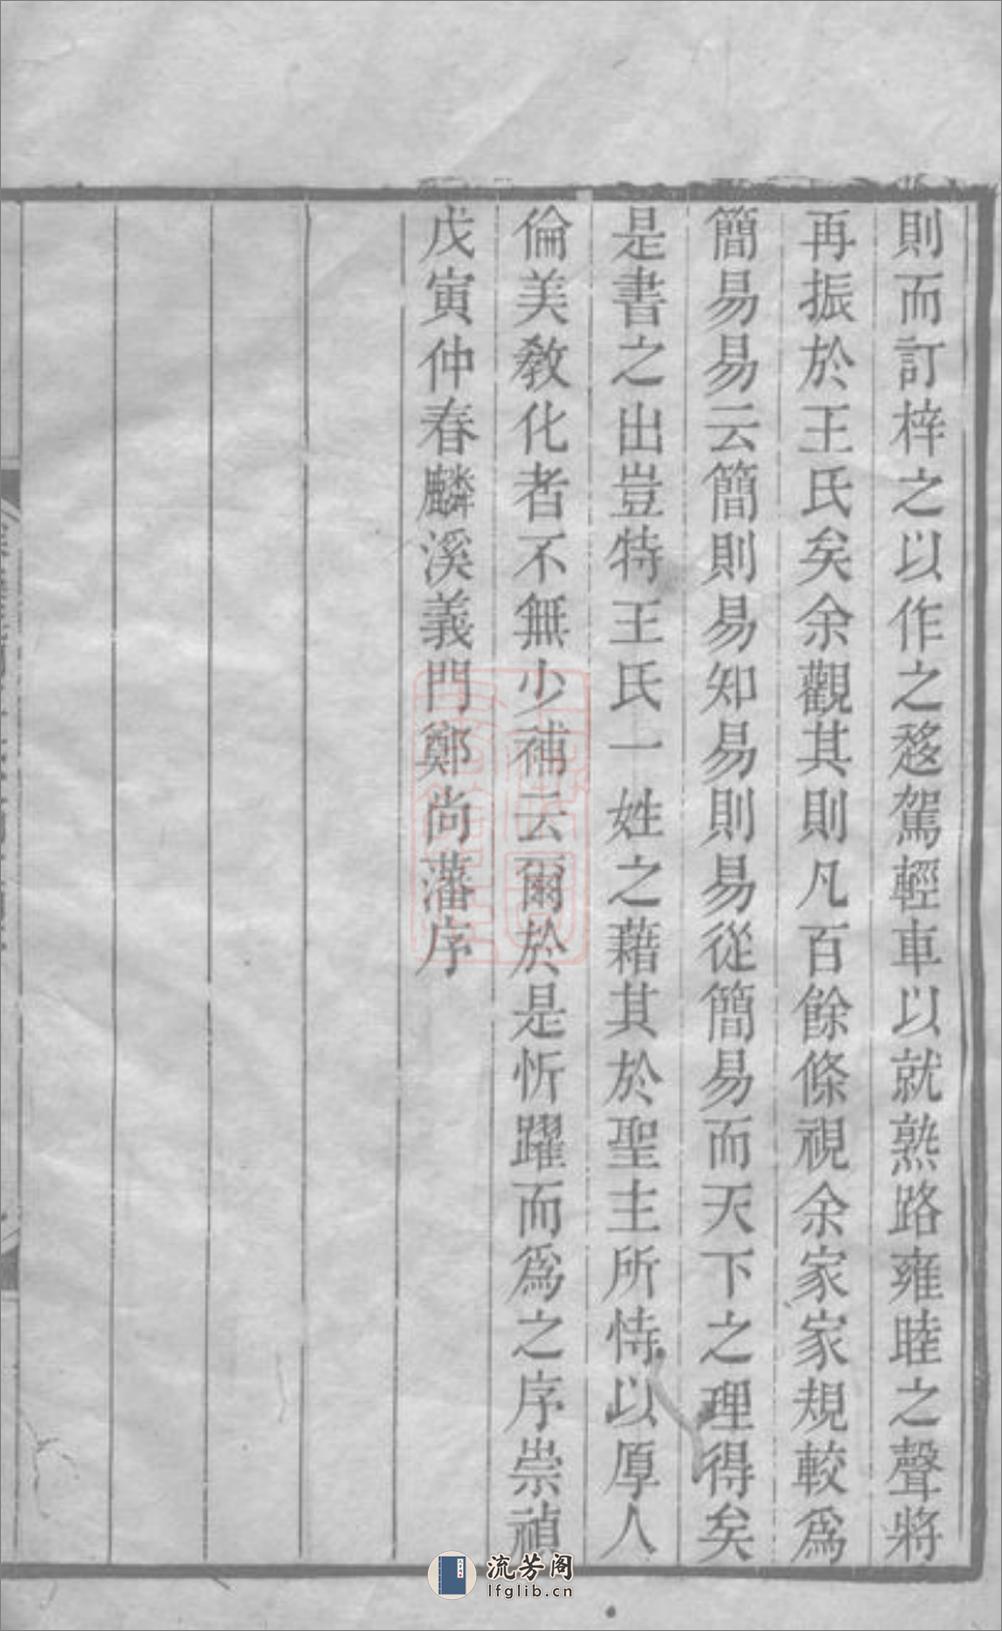 則而訂梓之以作之愆駕輕車以就熟路雍睦之聲將
再振於王氏矣余觀其則凡百餘條視余家家規較為
簡易易云簡則易知易則易從簡易而天下之理得矣
是書之出豈特王氏一姓之藉其於聖主所恃以厚人
倫美教化者不無少補云爾於是忻躍而為之序崇禎
戊寅仲春麟溪義門鄭尚藩序
流芳阁
lfglib.cn